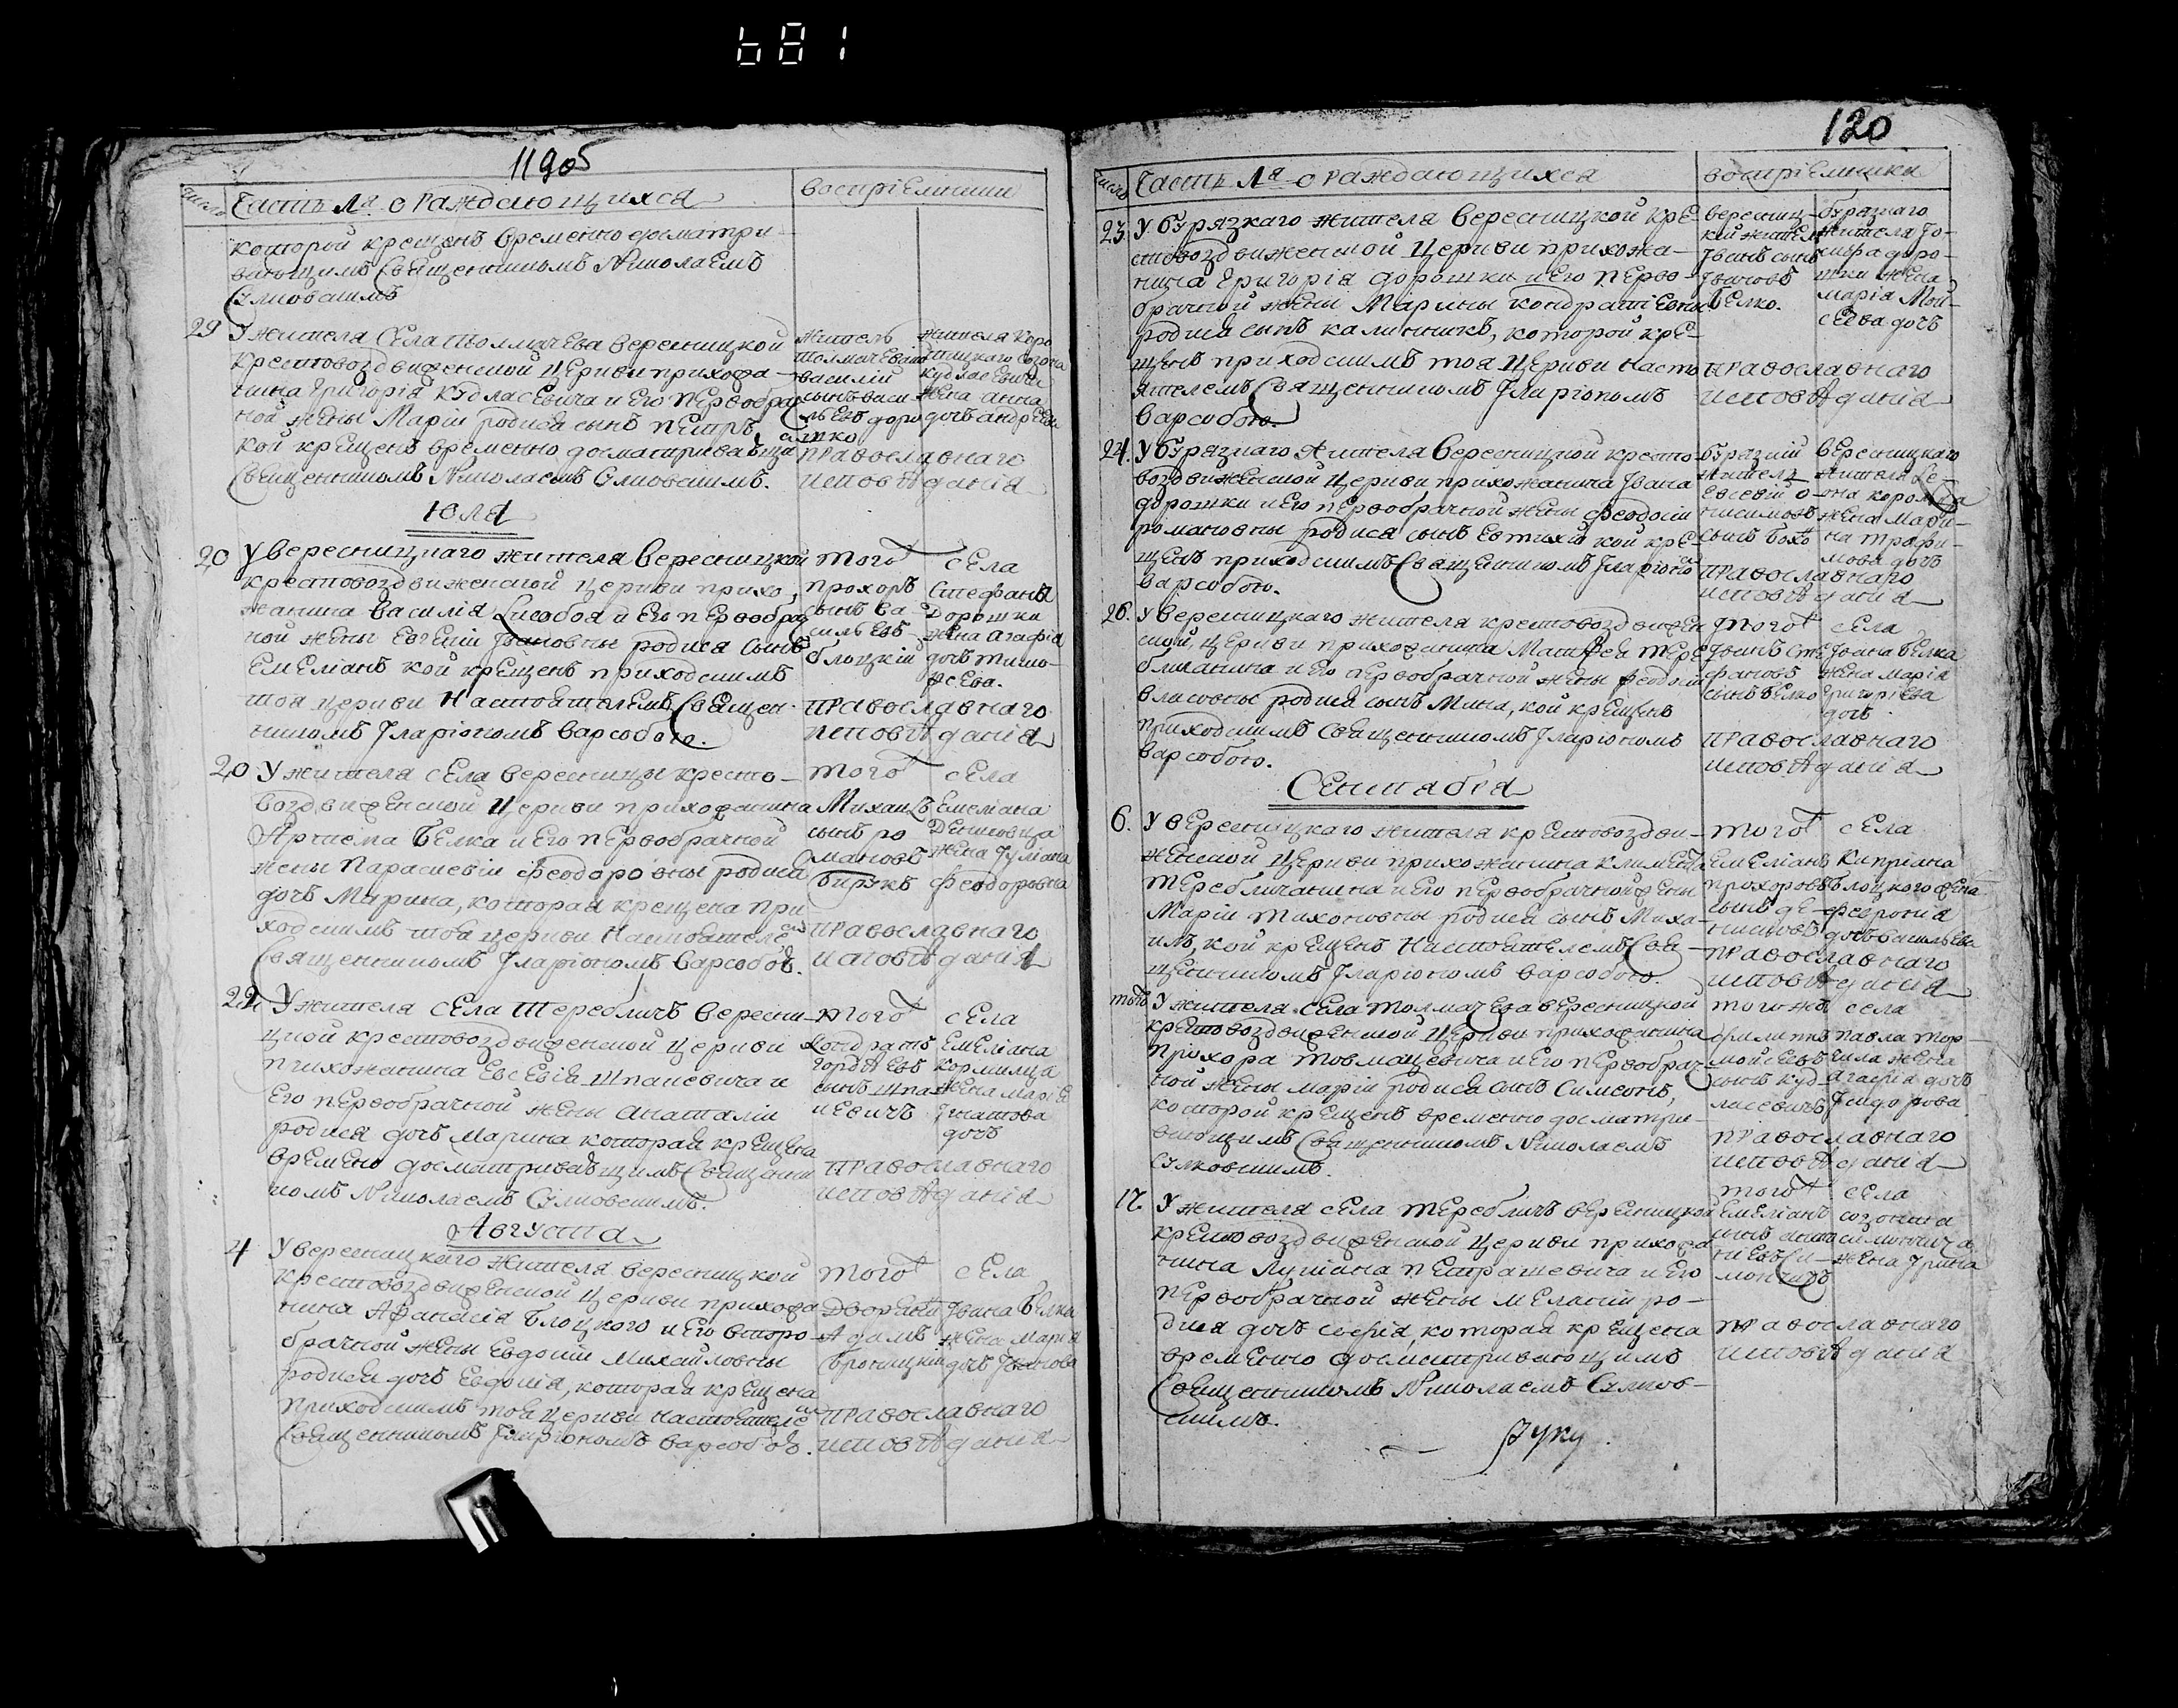 681
119об
число
Часть 1я о Раждающихся
воспріемники
которой крещенъ временно досматри-
вающимъ Священникомъ Николаемъ
29
У жителя села Толмачева Вересницкой
Крестовоздвиженской Церкви прихожа-
нина Григорія Кудласевича и Его первобрач
ной жены Маріи родися сынъ Петръ,
кой крещенъ временно досматриваѣщи
Священникомъ Николаемъ
Житель
Василій
сынъ Васи
льевъ доро
шко
жителя
Кудласевича
жена Анна
дочь Андреева
православнаго
исповѣданія
Юля
20
У вересницкаго жителя вересницкой
крестовоздвиженской церкви прихо-
жанина Василія Лисобоя и Его первобрач
ной жены Евгеніи Ивановны родися сынъ
Емеліанъ кой крещенъ приходскимъ
тоя церкви Настоятелемъ Священ-
никомъ Іларіономъ Варсобою.
того села
прохоръ
сынъ Ва
сильевъ
блоцкій
Стефана
Дорошки
жена Агафія
дочь Тимо-
феева.
православнаго
исповѣданія
20
У жителя села вересницы кресто-
воздвиженской Церкви прихожанина
Артема Белка и Его первобрачной
жены Параскевіи Феодоровны родися
дочь Марина, которая крещена при
ходскимъ тоя церкви Настоятеле
Священникомъ Іларіономъ Варсобоѣ.
того села
Михаилъ
сынъ ро
мановъ
бирукъ
Емеліана
Денисовца
жена Іуліана
Феодоровна
православнаго
исповѣданія
22
У жителя села Теребличъ вересни-
цкой крестовоздвиженской церкви
прихожанина Евсевія Шпаневича и
Его первобрачной жены Анатоліи
родися дочь Марина которая крещена
времено досматриваѣщимъ Священни
комъ Николаемъ
того села
Кондратъ
Гордѣевъ
сынъ шпа-
невичъ
Емеліана
Кормилца
жена Марія
Игнатова
дочь
православнаго
исповѣданія
Августа
4
У вересницкаго жителя вересницкой
крестовоздвиженской Церкви прихожа
нина Афанасія Блоцкого и Его второ-
брачной жены Евдокіи Михаиловны
родися дочь Евдокія, которая крещена
приходскимъ тоя Церкви настоятеле
Священникомъ Іларіономъ Варсобоѣ.
того села
Дворянинъ
Адамъ
Броницкій
Івана Белка
жена Марія
дочь Іванова
православнаго
исповѣданія
120
число
Часть 1я о Раждающихся
воспріемники
23.
У бурязкаго жителя Вересницкой Кре-
стовоздвиженской Церкви прихожа-
нина Григорія Дорошки и Его перво-
брачной жены Марины Кондратіевны
родися сынъ Калинникъ, которой кре-
щенъ приходскимъ тоя Церкви Насто
ятелемъ Священникомъ Іларіономъ
Варсобою.
вересниц-
кій житель
Іванъ сынъ
Івановъ
Белко.
бурязкаго
жителя
доро-
шки жена
марія Мои-
сеева дочь
православнаго
исповѣданія
24.
У бурязкаго жителя Вересницкой кресто-
воздвиженской Церкви прихожанина Івана
Дорошки и Его первобрачной жены Феодосіи
романовны родися сынъ Евтихій кой кре-
щенъ приходскимъ Священникомъ Іларіоно
Варсобою.
бурязкій
житель
Евсевій О-
нисимовъ
сынъ
вересницкаго
жителя Се-
она
жена Мари-
на Трофи-
мова дочь
православнаго
исповѣданія
26.
У вересницкаго жителя крестовоздвижен
ской Церкви прихожанина Матфея Тере
бличанина и Его первобрачной жены Феодосіи
Власовны родися сынъ Мина, кой крещенъ
приходскимъ Священникомъ Іларіономъ
Варсобою.
того села
Іванъ Сте
фановъ
сынъ Белко
Іоанна Белка
жена Марія
Григоріева
дочь
православнаго
исповѣданія
Сентабра
6.
У вересницкаго жителя крестовоздви-
женской Церкви прихожанина Климента
Теребличанина и Его первобрачной жены
Маріи Тихоновны родися сынъ Миха-
илъ, кой крещенъ Настоятелемъ Свя-
щенникомъ Іларіономъ Варсобою.
того села
Емеліанъ
прохоровъ
сынъ де-
нисовъ
Кипріана
Блоцкого жена
Февронія
дочь Васильева
православнаго
исповѣданія
тогож
У жителя села Толмачева вересницкой
крестовоздвиженской Церкви прихожанина
Прохора Товмацевича и Его первобрач-
ной жены Маріи родися сынъ Симеонъ,
которой крещенъ временно досматри-
вающимъ Священникомъ Николаемъ
того жъ села
Филиппъ
Моисеевъ
сынъ Куд-
ласевичъ
Павла Тор-
гила жена
Агафія дочь
Ісидорова
православнаго
исповѣданія
17.
У жителя села Теребличъ вересницкой
крестовоздвиженской Церкви прихожа
нина Лукіана Петрашевича и Его
первобрачной жены Меланіи ро-
дися дочь Софія, которая крещена
временно досматривающимъ
Священникомъ Николаемъ
того села
Емеліанъ
сынъ
жена Ірина
православнаго
исповѣданія
руку.